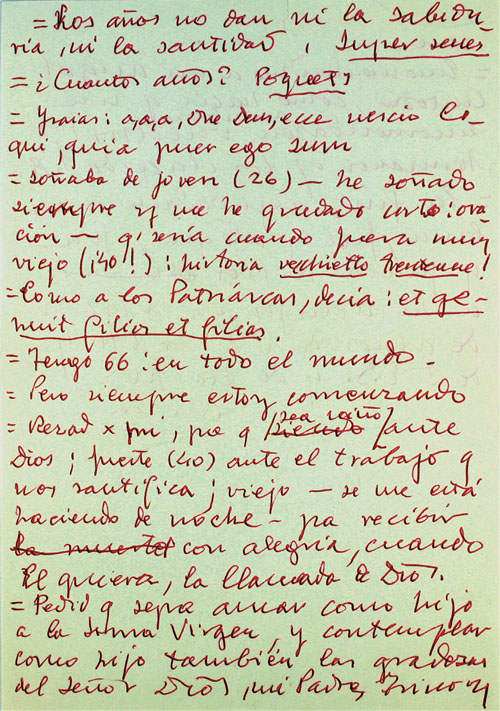 = Los años no dan ni la sabidu-
ría, ni la santidad, Super senes
= ¿Cuantos años? Poquets
= Ysaias: a, a, a, Dne Deus, ecce nescio lo-
qui, quia puer ego sum
= soñaba de joven (26) — he soñado
siempre y me he quedado corto: ora-
ción — q' sería cuando fuera muy
viejo (¡40!): historia vechietto trentenne!
= Como a los Patriarcas, decía: et ge-
nuit filios et filias.
= Tengo 66: en todo el mundo.
= Pero siempre estoy comenzando
= Rezad x mi, pa q sea niño ante
Dios; fuerte (40) ante el trabajo q
nos santifica; viejo — se me está
haciendo de noche — pa recibir
la muerte con alegría, cuando
El quiera, la llamada d Dios.
= Pedid q sepa amar como hijo
a la Sma Virgen, y contemplar
como hijo también las grandezas
del Señor Dios, mi Padre, Trino y